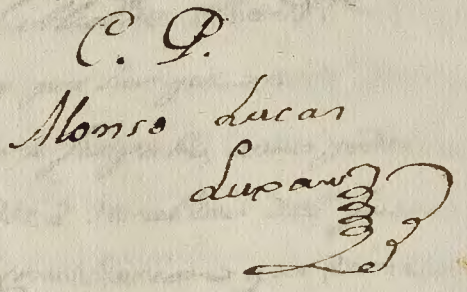 C. P.
Alonso Lucas
Luxan